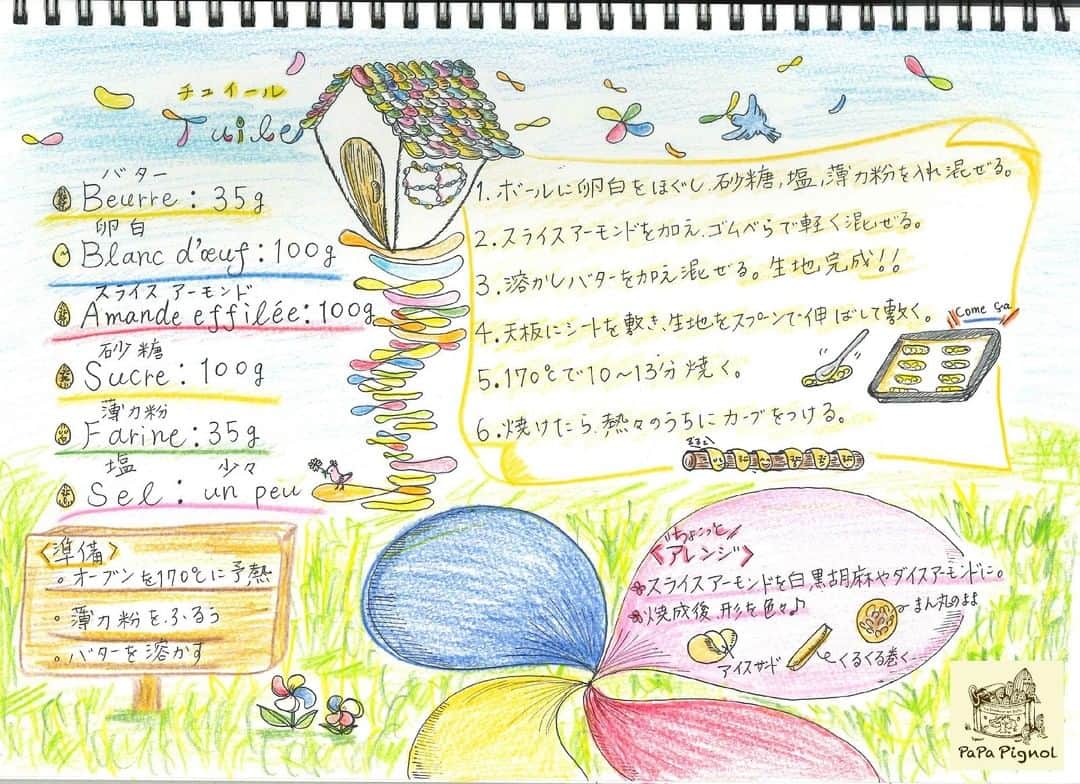 チュイール
Tuile
バター
Beurre : 35g
卵白
Blanc d'œuf : 100g
スライスアーモンド
Amande effilée : 100g
砂糖
Sucre : 100g
薄力粉
Farine : 35g
塩 少々
Sel : un peu
〈準備〉
。オーブンを170℃に予熱
。薄力粉をふるう
。バターを溶かす
1. ボールに卵白をほぐし、砂糖,塩,薄力粉を入れ混ぜる。
2. スライスアーモンドを加え、ゴムべらで軽く混ぜる。
3. 溶かしバターを加え混ぜる。生地完成!!
4. 天板にシートを敷き、生地をスプーンで伸ばして敷く。
Come ça
5. 170℃で10〜13分焼く。
6. 焼けたら、熱々のうちにカーブをつける。
ちょこっと
〈アレンジ〉
スライスアーモンドを白黒胡麻やダイスアーモンドに。
焼成後、形を色々♪
まん丸のまま
アイスサンド
くるくる巻く
PaPa Pignol